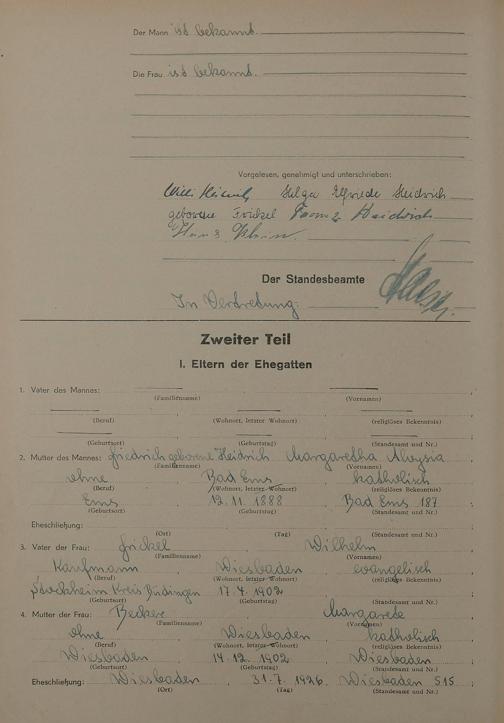 Der Mann ist bekannt.
Die Frau ist bekannt.
Vorgelesen, genehmigt und unterschrieben:
Willi Heidrich Helga Elfriede Heidrich
geborene Frickel Heidrich
Hans
Der Standesbeamte
In Vertretung:
Zweiter Teil
I. Eltern der Ehegatten
1. Vater des Mannes:
(Familienname) (Vornamen)
(Beruf) (Wohnort, letzter Wohnort) (religiöses Bekenntnis)
(Geburtsort) (Geburtstag) (Standesamt und Nr.)
2. Mutter des Mannes: Friedrich geborene Heidrich Margaretha Aloysia
(Familienname) (Vornamen)
ohne Bad Ems katholisch
(Beruf) (Wohnort, letzter Wohnort) (religiöses Bekenntnis)
Ems 12.11.1888 Bad Ems 187
(Geburtsort) (Geburtstag) (Standesamt und Nr.)
Eheschließung:
(Ort) (Tag) (Standesamt und Nr.)
3. Vater der Frau: Frickel Wilhelm
(Familienname) (Vornamen)
Kaufmann Wiesbaden evangelisch
(Beruf) (Wohnort, letzter Wohnort) (religiöses Bekenntnis)
Stockheim Kreis Büdingen 17.4.1902
(Geburtsort) (Geburtstag) (Standesamt und Nr.)
4. Mutter der Frau: Becker Margarete
(Familienname) (Vornamen)
ohne Wiesbaden katholisch
(Beruf) (Wohnort, letzter Wohnort) (religiöses Bekenntnis)
Wiesbaden 14.12.1902 Wiesbaden
(Geburtsort) (Geburtstag) (Standesamt und Nr.)
Eheschließung: Wiesbaden 31.7.1926 Wiesbaden 515
(Ort) (Tag) (Standesamt und Nr.)